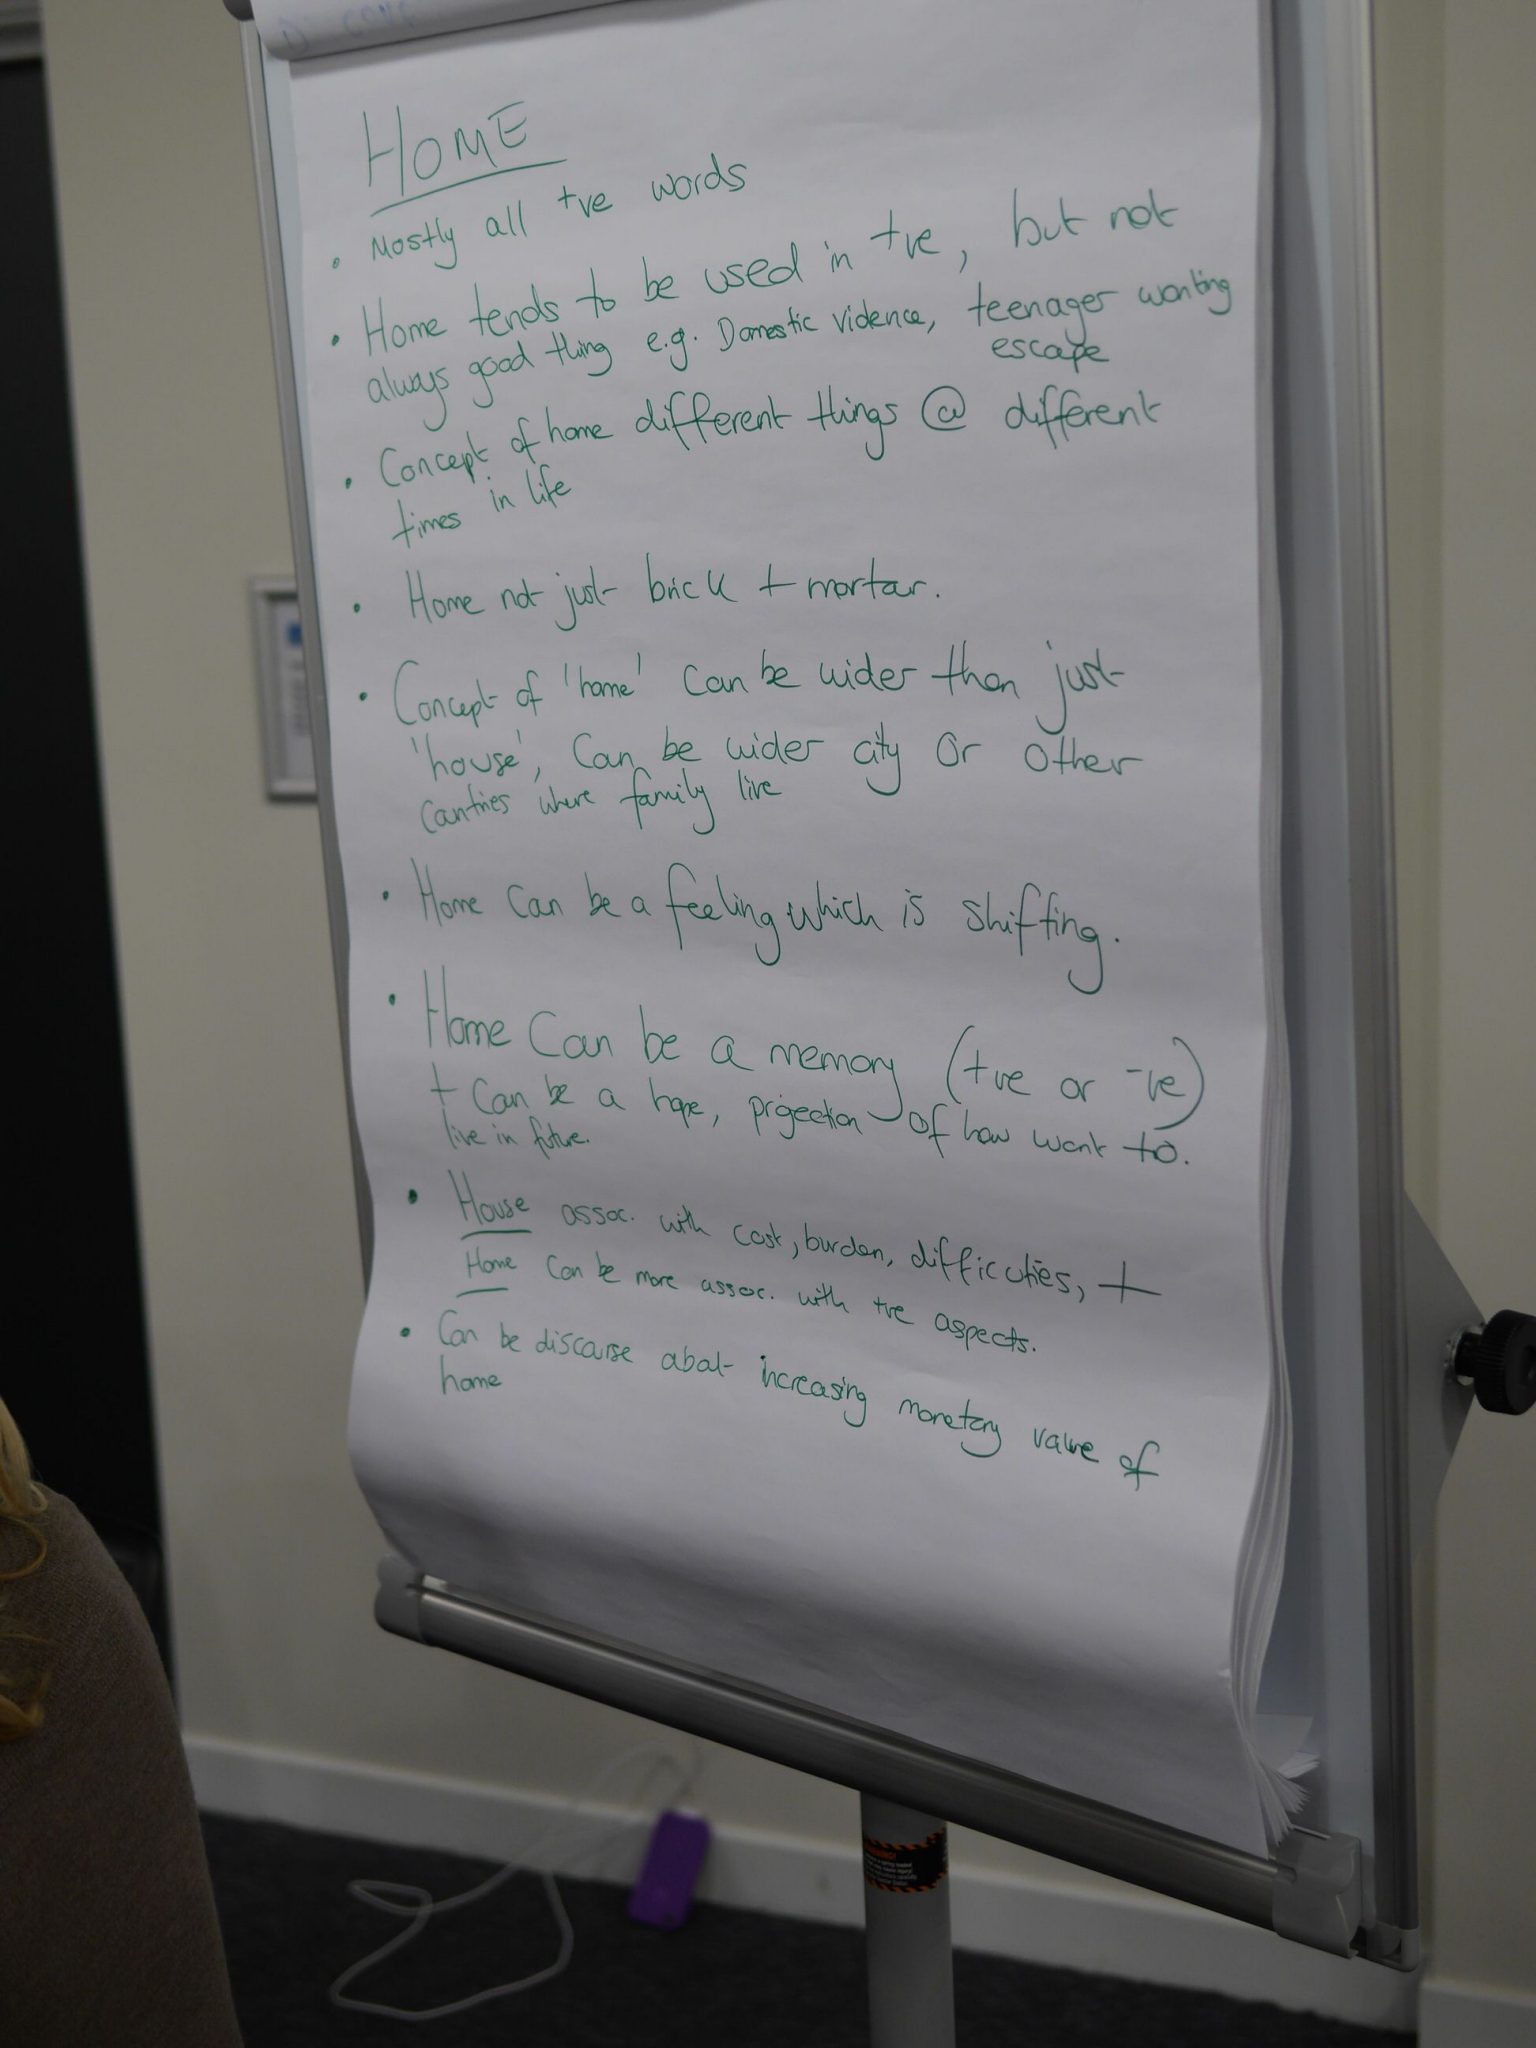 HOME
• Mostly all +ve words
• Home tends to be used in +ve, but not
always good thing e.g. Domestic violence, teenager wanting
escape
• Concept of home different things @ different
times in life
• Home not just brick + mortar.
• Concept of 'home' can be wider than just
'house', can be wider city or other
countries where family live
• Home can be a feeling which is shifting.
• Home can be a memory (+ve or -ve)
+ can be a hope, projection of how want to.
live in future.
• House assoc. with cost, burden, difficulties, +
Home can be more assoc. with +ve aspects.
• Can be discourse about increasing monetary value of
home
WARNING!